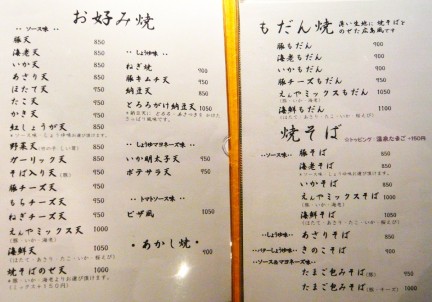 お好み焼
‥ソース味‥
豚天 850
海老天 850
いか天 850
あさり天 850
ほたて天 950
たこ天 950
かき天 950
紅しょうが天 850
野菜天
ガーリック天 850
そば入り天(豚) 950
豚チーズ天 950
もちチーズ天 950
ねぎチーズ天 950
えんやミックス天 1000
(豚・いか・海老)
海鮮天 1050
(ほたて・あさり・たこ・いか・海老)
焼そばのせ天 1000
*豚・いか・海老よりお選び頂けます。
(ミックス+150円)
‥しょうゆ味‥
ねぎ焼 900
豚キムチ天 950
納豆天 850
とろろがけ納豆天 1050
‥しょうゆマヨネーズ味‥
いか明太子天 950
ポテサラ天 950
‥トマトソース味‥
ピザ風 1050
・あかし焼・ 900
もだん焼
薄い生地に焼そばを
のせた広島風です
豚もだん 900
海老もだん 900
いかもだん 900
豚チーズもだん 1000
えんやミックスもだん 1050
(豚・いか・海老)
海鮮もだん 1100
(ほたて・あさり・たこ・いか・海老)
焼そば
☆トッピング‥温泉たまご+150円
‥ソース味‥
豚そば 850
海老そば 850
いかそば 850
えんやミックスそば 1000
(豚・いか・海老)
海鮮そば 1050
(ほたて・あさり・たこ・いか・海老)
‥しょうゆ味‥
あさりそば 850
‥バターしょうゆ味‥
きのこそば 900
‥ソース&マヨネーズ味‥
たまご包みそば(豚) 950
たまご包みそば(豚・チーズ) 1050